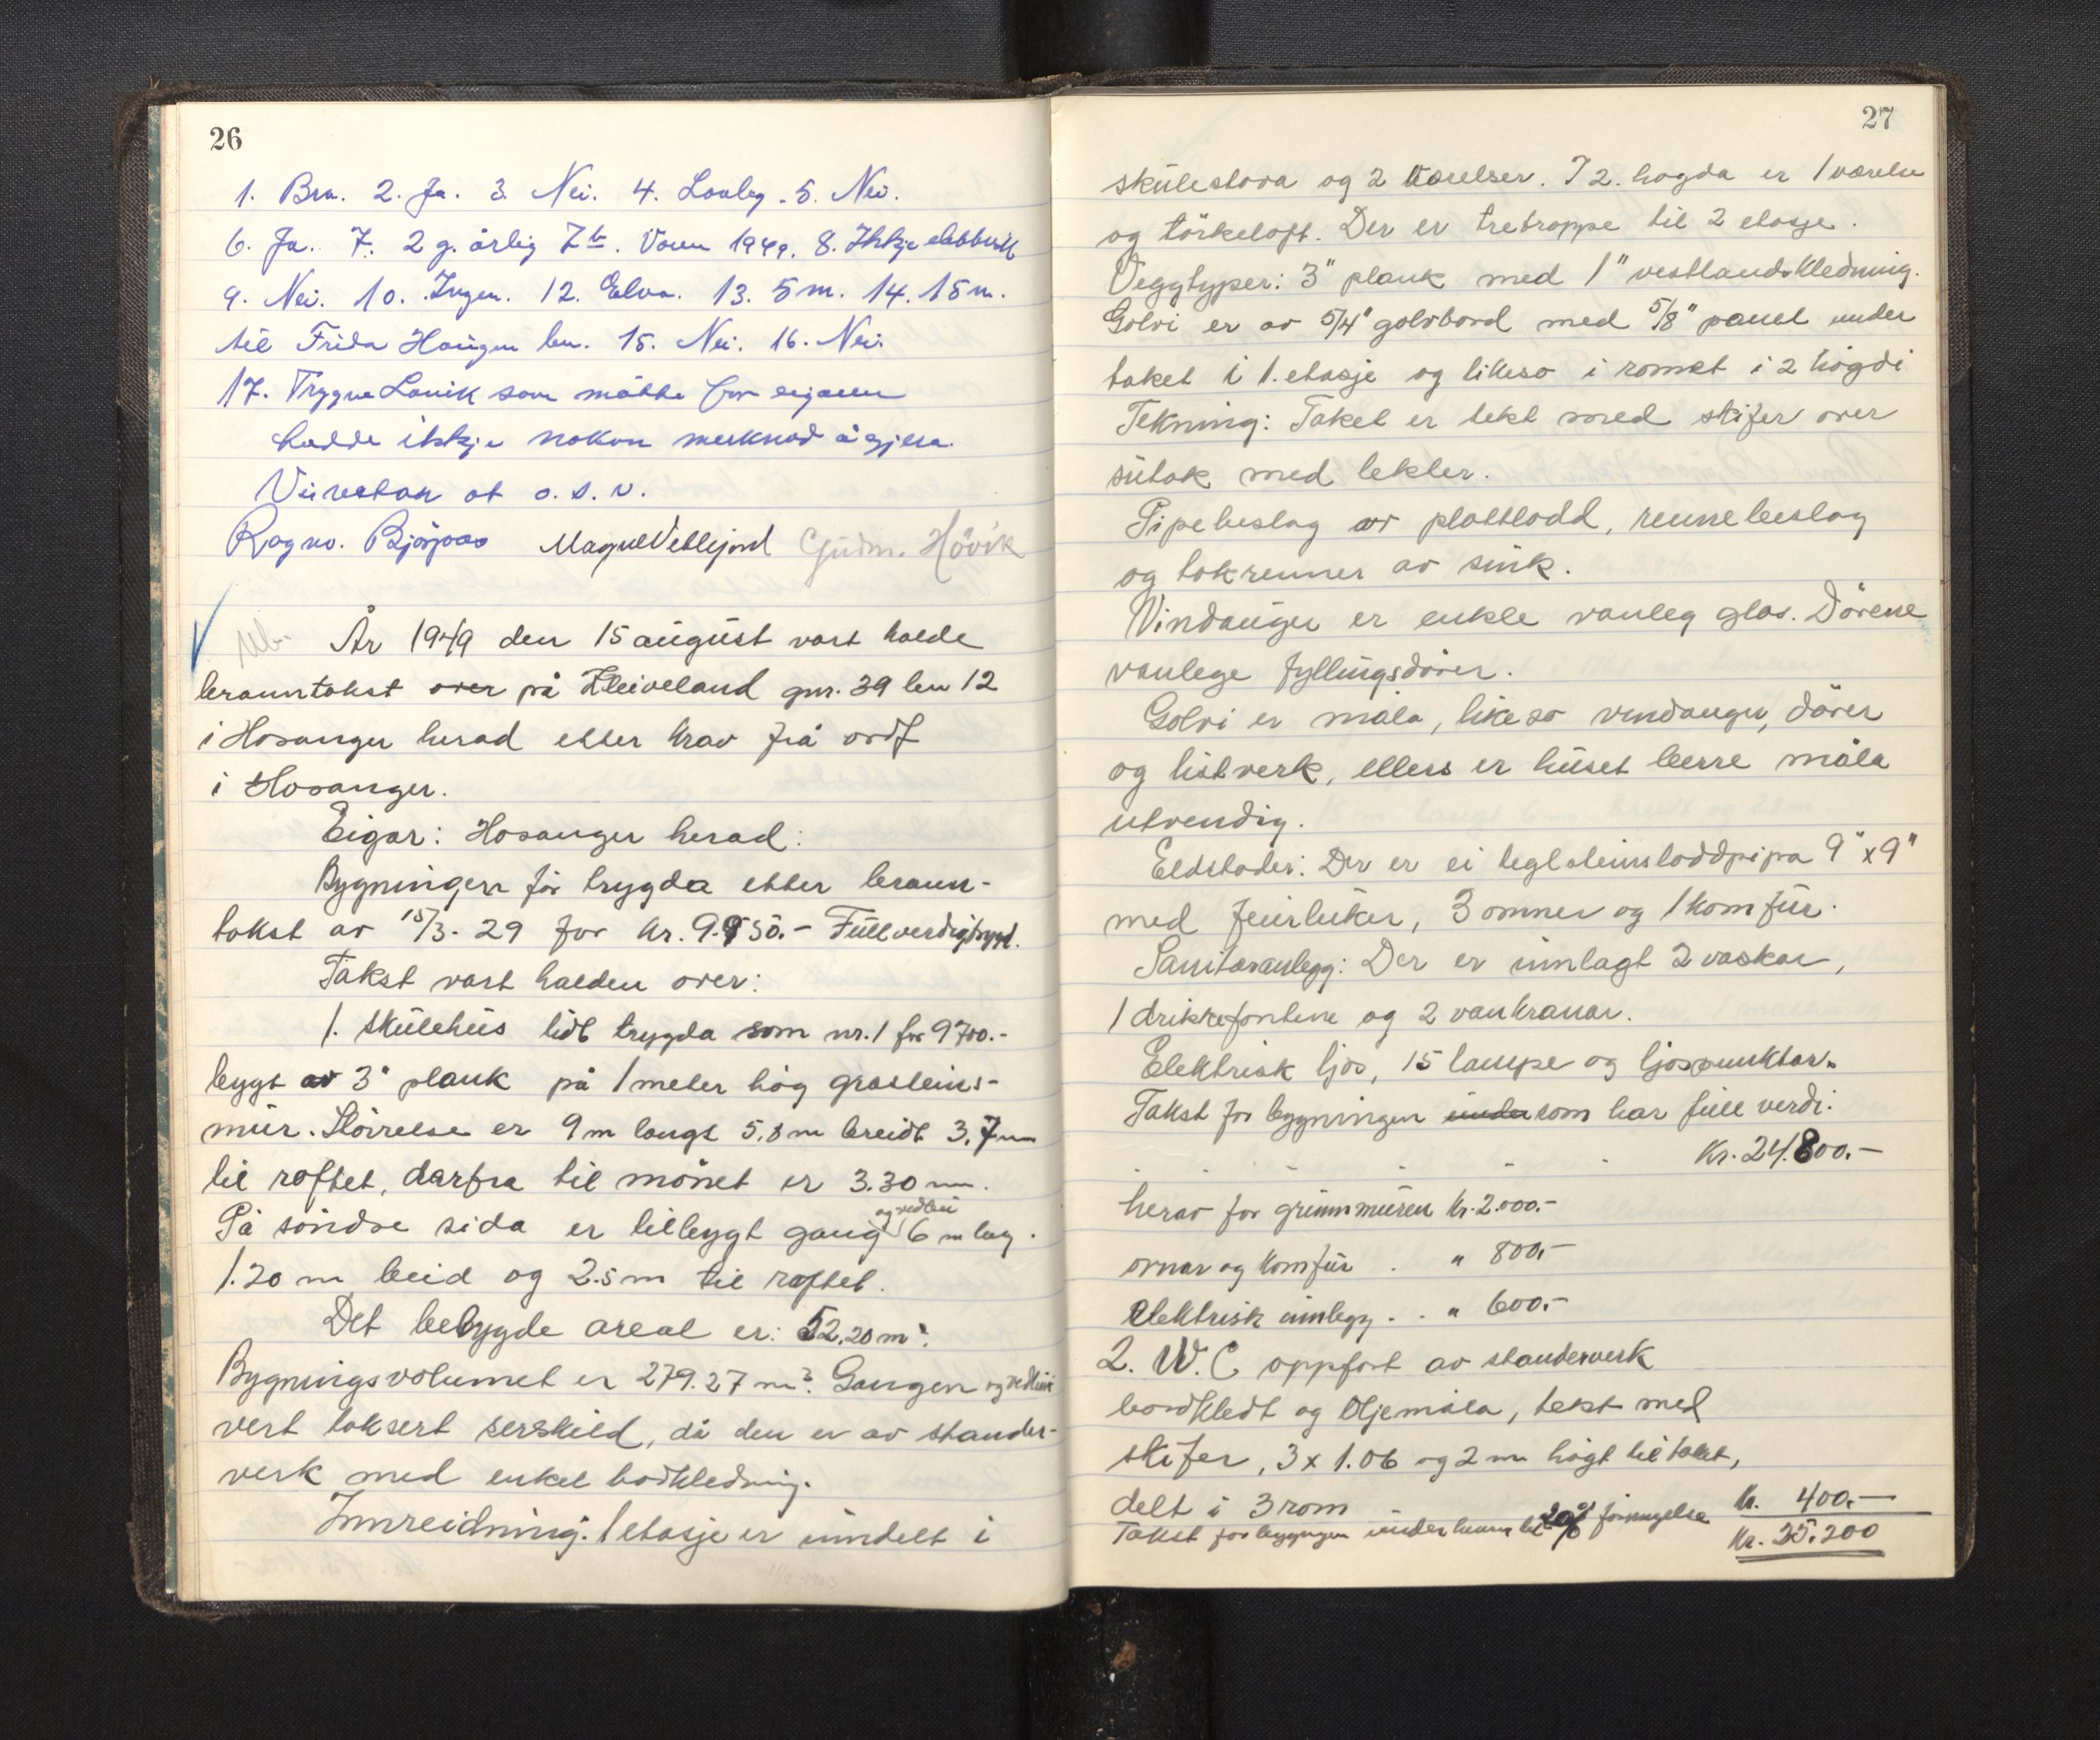 26
1. Bra. 2. Ja. 3. Nei. 4. Lovleg. 5. Nei.
6. Ja. 7. 2 g. årlig Varen 1949. 8. Ikkje elektrisk
9. Nei. 10. Ingen. 12. Elva. 13. 5 m. 14. 15 m.
til Frida Haugen 15. Nei. 16. Nei.
17. Trygve Lavik som møtte for eigaren
hadde ikkje nokon merknad å gjera.
at o. s. v.
Ragnv. Magne Vetlejord Gudm. Hövik
År 1949 den 15 august vart halde
branntakst over på Kleiveland gnr. 39 bn 12
i Hosanger herad etter krav frå ordf
i Hosanger.
Eigar: Hosanger herad:
Bygningen för trygda etter brann-
takst av 15/3-29 for kr. 9.950.- Fullverditrygd.
Takst vart halden over:
1. Skulehus tidl trygda som nr. 1 for 9700.-
bygt av 3" plank på 1 meter høg grasteins-
mur. Störrelse er 9 m langt 5,8 m breidt 3,7 m
til røftet, derfra til mönet er 3.30 m.
og vedbu
På söndre sida er tilbygt gang 6 m lang.
1.20 m breid og 2.5 m til røftet.
Det bebygde areal er: 52,20 m².
Bygningsvolumet er 279.27 m³. Gangen og vedbui
vert taksert serskild, då den er av stander-
verk med enkel bordkledning.
Innreidning: 1 etasje er inndelt i
27
skulestova og 2 værelser. I 2. høgda er 1 værelse
og törkeloft. Der er tretroppe til 2 etasje.
Veggtyper: 3" plank med 1" vestlandskledning.
Golvi er av 5/4" golvbord med 5/8" panel under
taket i 1. etasje og likeso i romet i 2 högdi
Tekning: Taket er tekt med skifer over
sutak med lekter.
Pipebeslag av plattlodd, rennebeslag
og takrenner av sink.
Vindaugu er enkle vanleg glas. Dörene
vanlege fyllingsdörer.
Golvi er måla, likeso vindaugu, dörer
og listverk, ellers er huset berre måla
utvendig.
Eldstader: Der er ei teglsteinsloddpipa 9"x9"
med feierluker, 3 omner og 1 komfur.
Sanitæranlegg: Der er innlagt 2 vaskar,
1 drikkefontene og 2 vankranar.
Elektrisk ljos, 15 lampe og ljospunktar.
Takst for bygningen under som har full verdi:
Kr. 24.800.-
herav for grunnmuren Kr. 2.000.-
omnar og komfur . " 800.-
Elektrisk innlegg . . " 600.-
2. W. C oppfört av standerverk
bordkledt og Oljemåla, tekt med
skifer, 3 x 1.06 og 2 m högt til taket,
delt i 3 rom Kr. 400.-
Takst for bygningen under 20% fornyelse Kr. 25.200